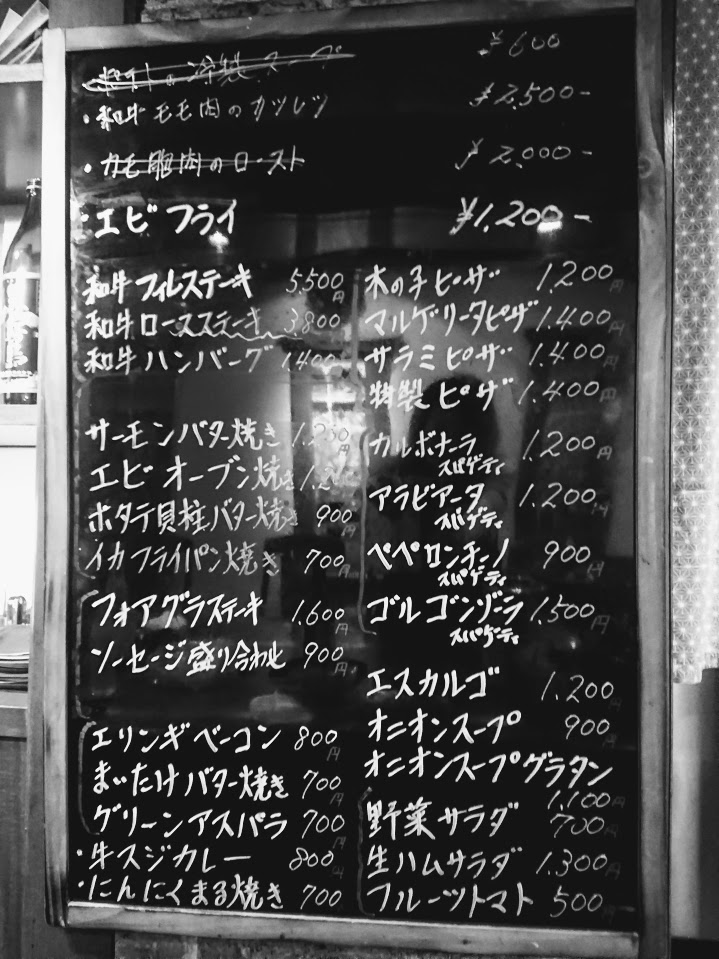 の冷製スープ ¥600
・和牛モモ肉のカツレツ ¥2,500-
・カモ胸肉のロースト ¥2,000-
・エビフライ ¥1,200-
和牛フィレステーキ 5,500円
和牛ロースステーキ 3,800
和牛ハンバーグ 1,400円
サーモンバター焼き 1,250
エビオーブン焼き
ホタテ貝柱バター焼き 900円
イカフライパン焼き 700円
フォアグラステーキ 1,600円
ソーセージ盛り合わせ 900円
エリンギベーコン 800円
まいたけバター焼き 700円
グリーンアスパラ 700円
・牛スジカレー 800円
・にんにくまる焼き 700
木の子ピザ 1,200円
マルゲリータピザ 1,400円
サラミピザ 1,400円
特製ピザ 1,400円
カルボナーラ 1,200円
スパゲティ
アラビアータ 1,200円
スパゲティ
ペペロンチーノ 900円
スパゲティ
ゴルゴンゾーラ 1,500円
スパゲティ
エスカルゴ 1,200円
オニオンスープ 900円
オニオンスープグラタン
1,100円
野菜サラダ 700円
生ハムサラダ 1,300円
フルーツトマト 500円